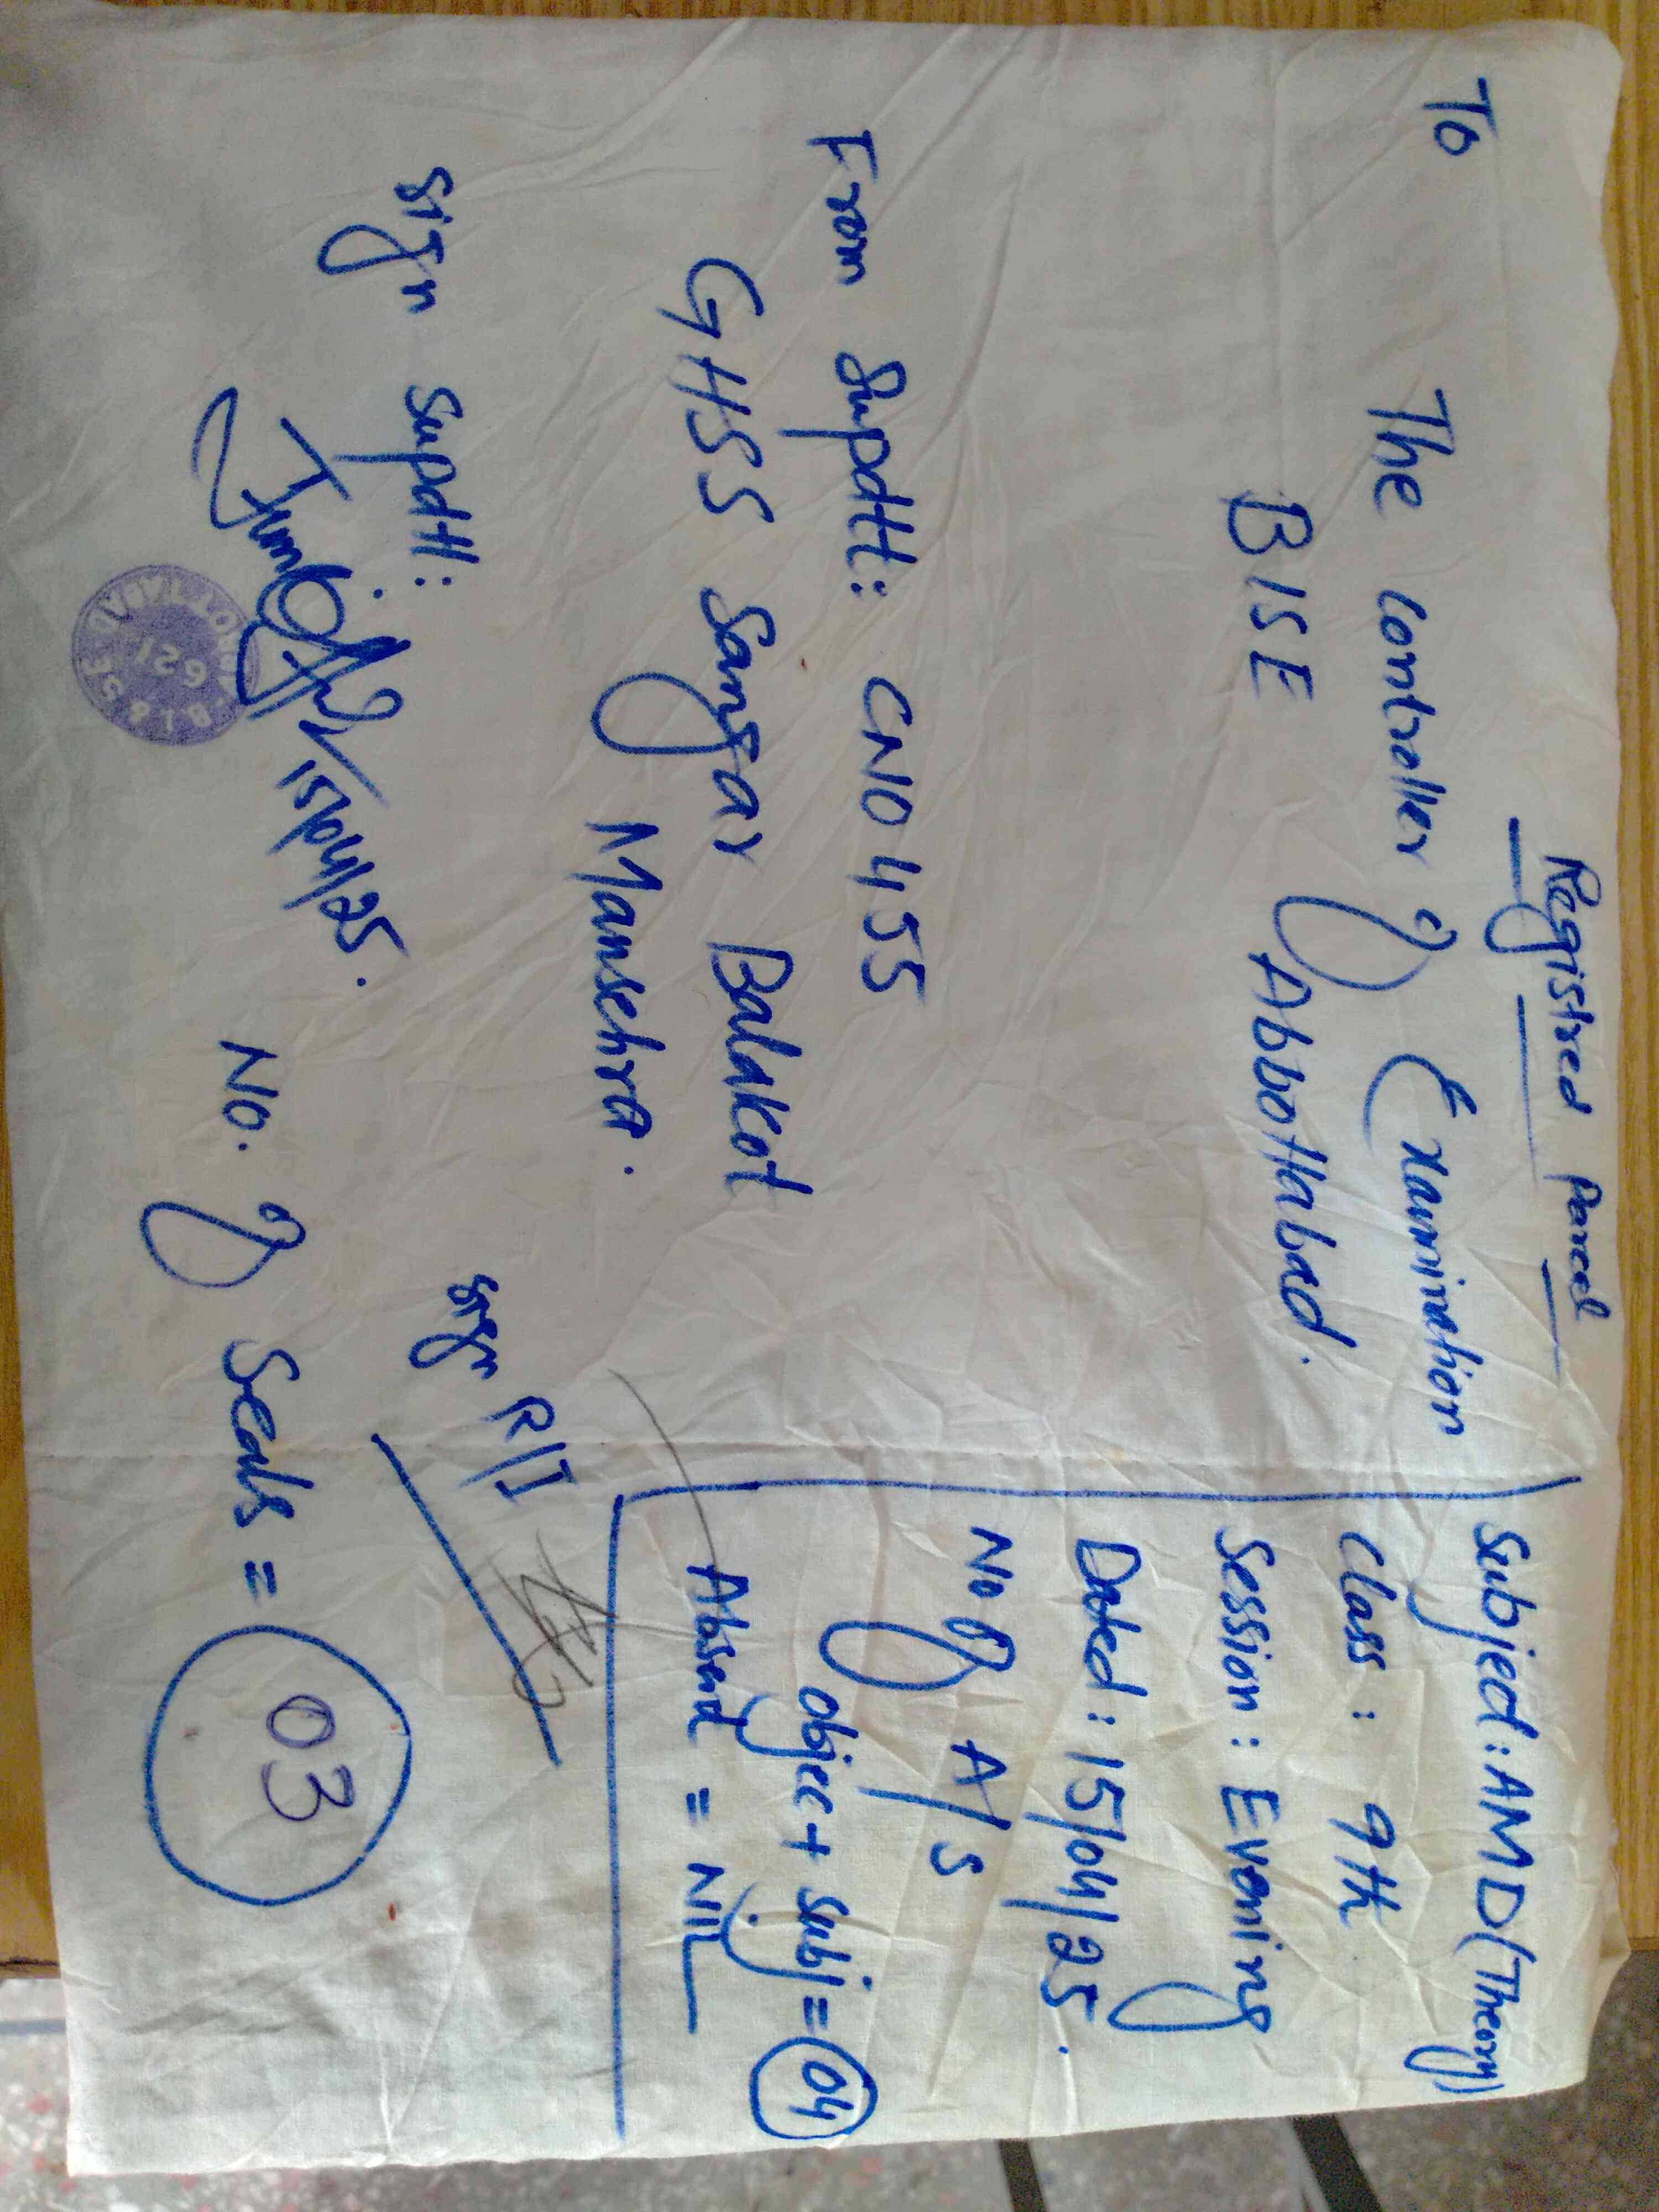 Registred parcel
To
The controller of Examination
BISE Abbottabad.
From Supdtt: CNO 455
GHSS Sangar Balakot
Mansehra.
Sign Supdtt:
15/04/25.
Sign R/I
No. of Seals = 03
Subject: AMD (Theory)
Class: 9th
Session: Evening
Dated: 15/04/25.
No of A/S
Objec + Subj = 04
Absent = NIL
B.I.S.E ABBOTTABAD
621